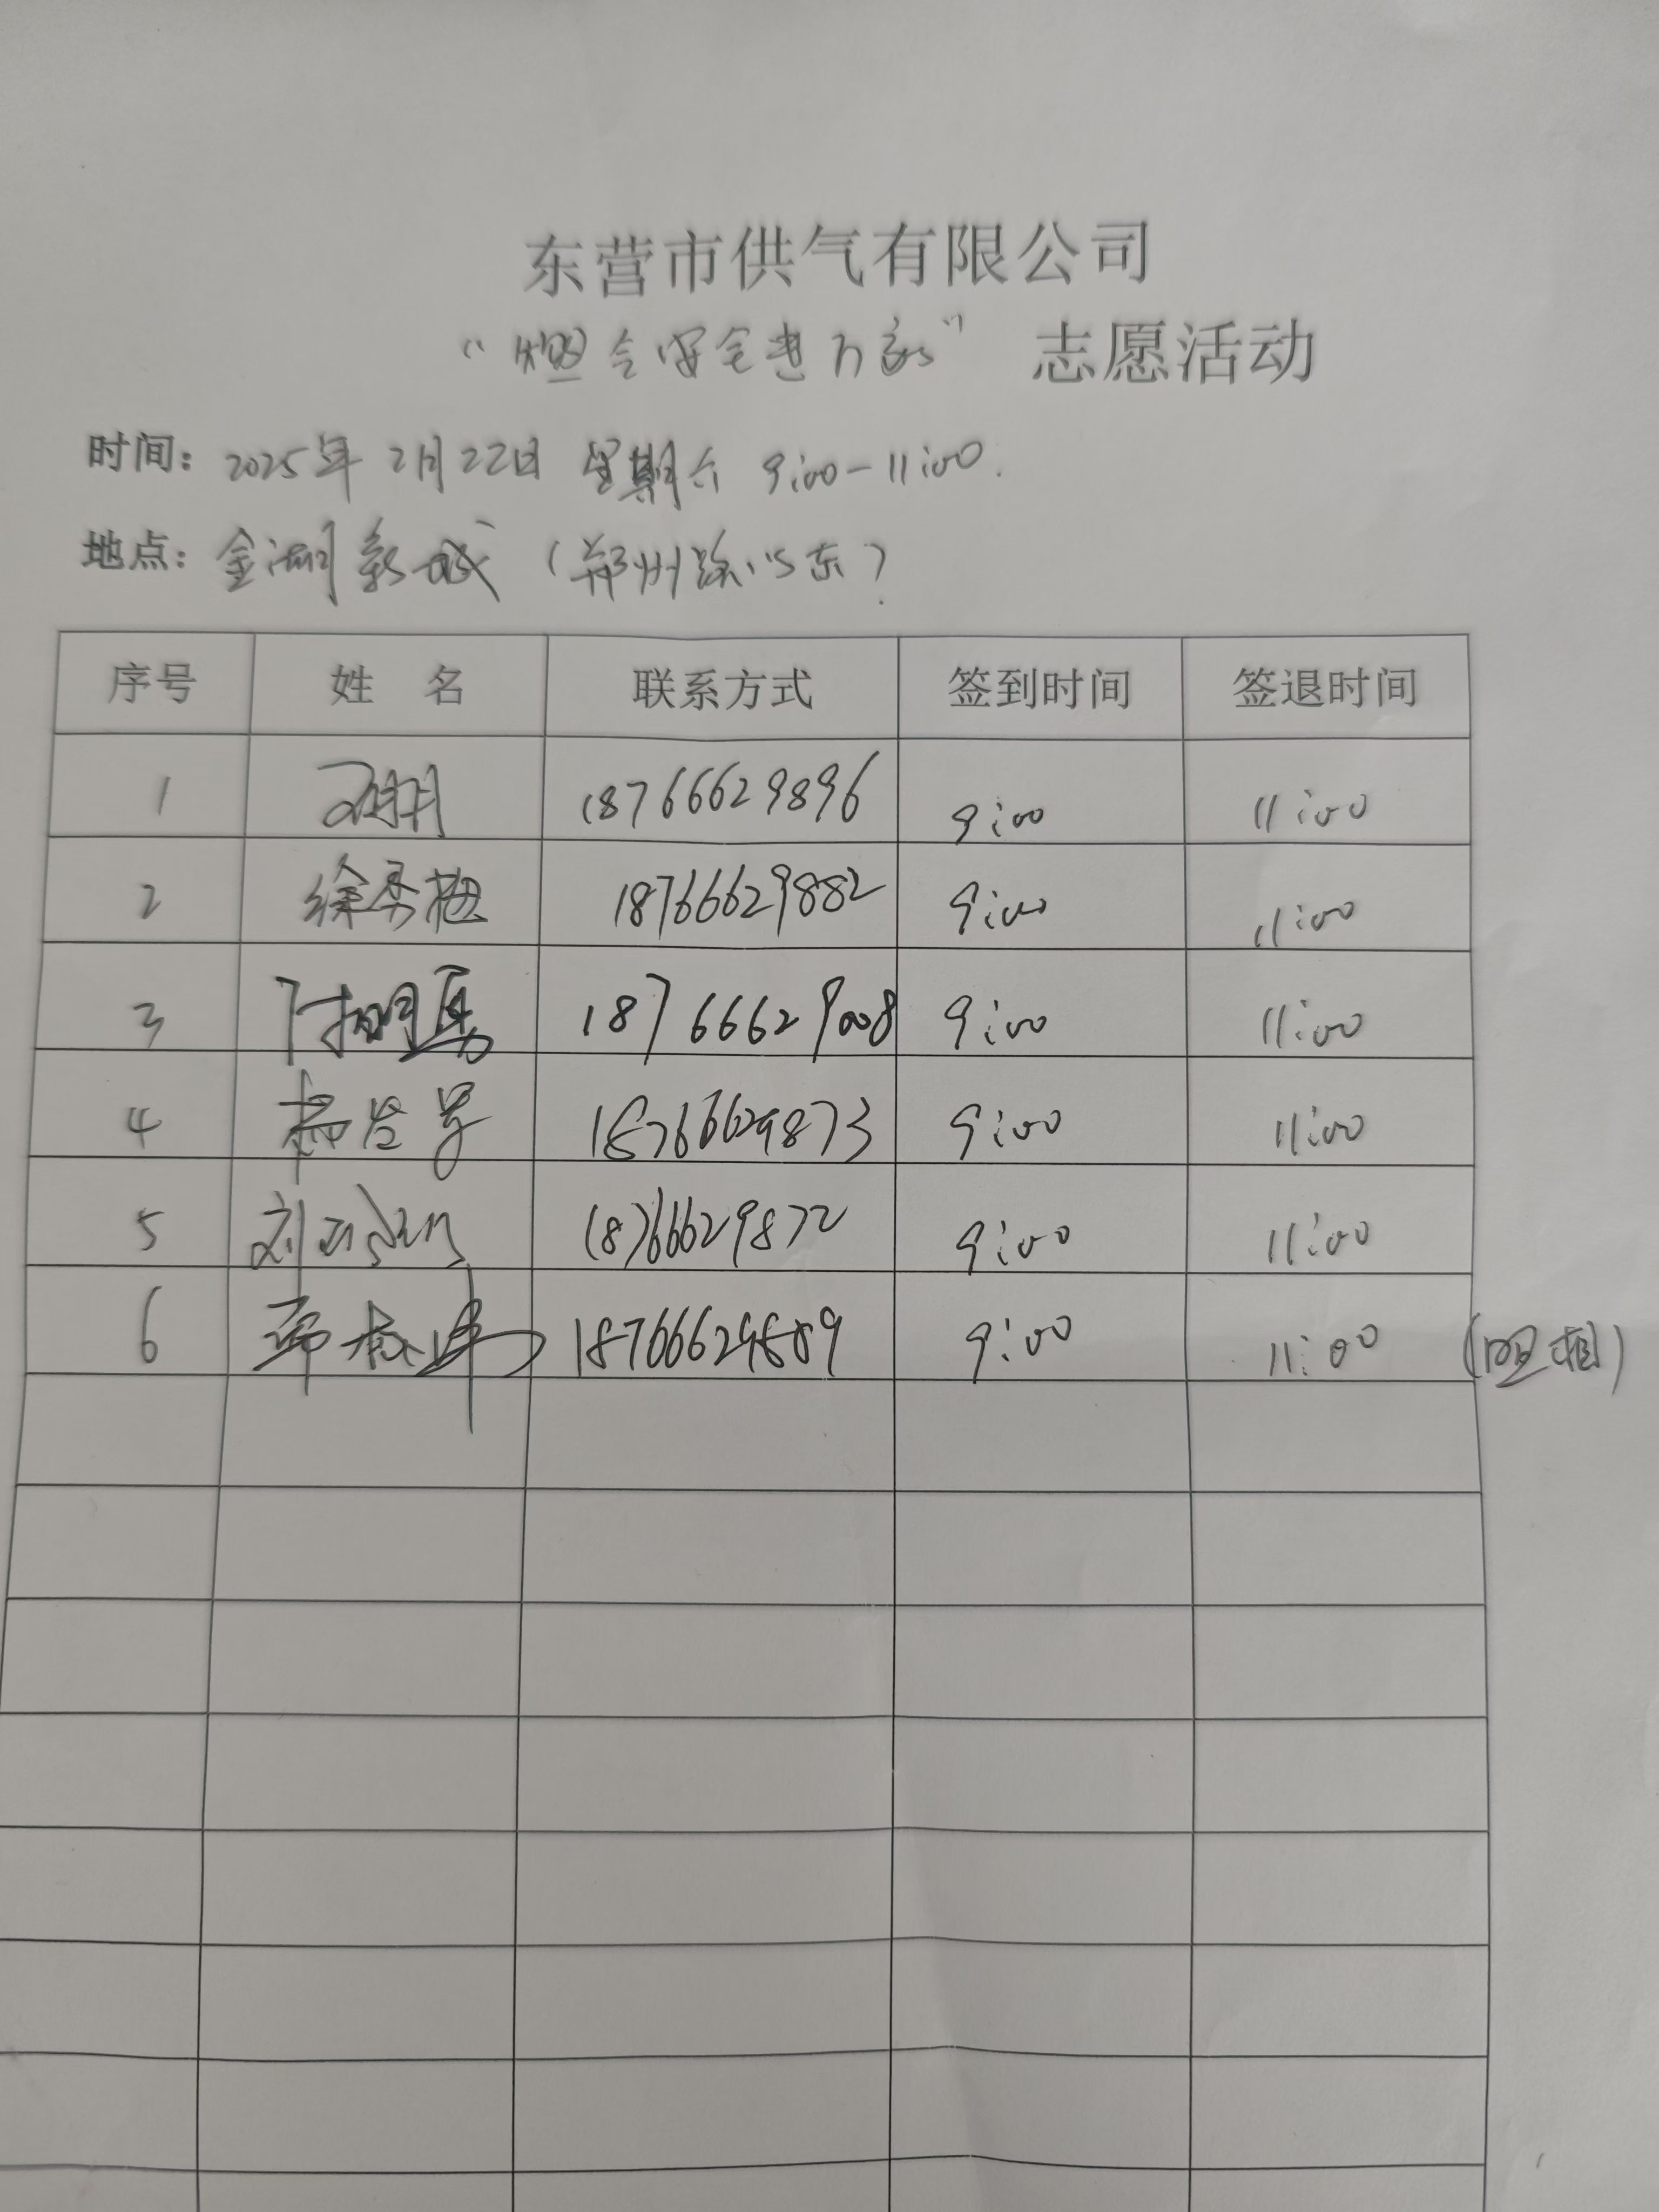 东营市供气有限公司
“燃气安全进万家” 志愿活动
时间: 2025年 2月22日 星期六 9:00-11:00.
地点: 金湖新城 (郑州路以东)
序号 姓 名 联系方式 签到时间 签退时间
1 18766629896 9:00 11:00
2 徐秀梅 18766629882 9:00 11:00
3 18766629008 9:00 11:00
4 18766629873 9:00 11:00
5 18766629872 9:00 11:00
6 18766629889 9:00 11:00 (照相)